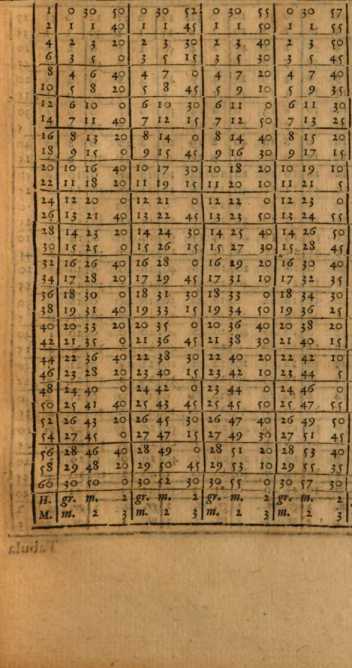 1 0 30 50 0 30 52 0 30 55 0 30 57
2 1 1 40 1 1 45 1 1 50 1 1 55
4 2 3 20 2 3 30 2 3 40 2 3 50
6 3 5 0 3 5 15 3 5 30 3 5 45
8 4 6 40 4 7 0 4 7 20 4 7 40
10 5 8 20 5 8 45 5 9 10 5 9 35
12 6 10 0 6 10 30 6 11 0 6 11 30
14 7 11 40 7 12 15 7 12 50 7 13 25
16 8 13 20 8 14 0 8 14 40 8 15 20
18 9 15 0 9 15 45 9 16 30 9 17 15
20 10 16 40 10 17 30 10 18 20 10 19 10
22 11 18 20 11 19 15 11 20 10 11 21 5
24 12 20 0 12 21 0 12 22 0 12 23 0
26 13 21 40 13 22 45 13 23 50 13 24 55
28 14 23 20 14 24 30 14 25 40 14 26 50
30 15 25 0 15 26 15 15 27 30 15 28 45
32 16 26 40 16 28 0 16 29 20 16 30 40
34 17 28 20 17 29 45 17 31 10 17 32 35
36 18 30 0 18 31 30 18 33 0 18 34 30
38 19 31 40 19 33 15 19 34 50 19 36 25
40 20 33 20 20 35 0 20 36 40 20 38 20
42 21 35 0 21 36 45 21 38 30 21 40 15
44 22 36 40 22 38 30 22 40 20 22 42 10
46 23 28 20 23 40 15 23 42 10 23 44 5
48 24 40 0 24 42 0 23 44 0 24 46 0
50 25 41 40 25 43 45 25 45 50 25 47 55
52 26 43 20 26 45 30 26 47 40 26 49 50
54 27 45 0 27 47 15 27 49 30 27 51 45
56 28 46 40 28 49 0 28 51 20 28 53 40
58 29 48 20 29 50 45 29 53 10 29 55 35
60 30 50 0 30 52 30 30 55 0 30 57 30
H. gr. m. 2 gr. m. 2 gr. m. 2 gr. m. 2
M. m. 2 3 m. 2 3 m. 2 3 m. 2 3